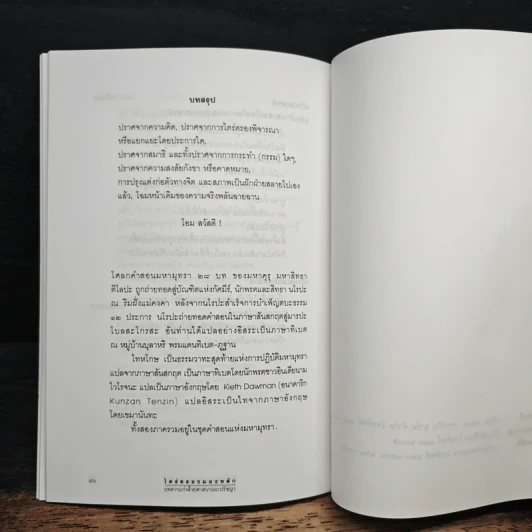 บทสรุป
ปราศจากความคิด, ปราศจากการไตร่ตรองพิจารณา
หรือแยกแยะโดยประการใด,
ปราศจากสมาธิ และทั้งปราศจากการกระทำ (กรรม) ใดๆ,
ปราศจากความสงสัยกังขา หรือคาดหมาย,
การปรุงแต่งก่อตัวทางจิต และสภาพเป็นฝักฝ่ายสลายไปเอง
แล้ว, โฉมหน้าเดิมของความจริงพลันฉายฉาน.
โอม สวัสติ !
โศลกคำสอนมหามุทรา ๒๘ บท ของมหาคุรุ มหาสิทธา
ติโลปะ ถูกถ่ายทอดสู่บัณฑิตแห่งกัศมีร์, นักพรตและสิทธา นโรปะ
ณ ริมฝั่งแม่คงคา หลังจากนโรปะสำเร็จการบำเพ็ญตบะธรรม
๑๒ ประการ นโรปะถ่ายทอดคำสอนในภาษาสันสกฤตสู่มารปะ
โบลสะโกรสะ อันท่านได้แปลอย่างอิสระเป็นภาษาทิเบต
ณ หมู่บ้านบุลาหริ พรมแดนทิเบต-ภูฐาน
โทหโกษ เป็นธรรมวาทะสุดท้ายแห่งการปฏิบัติมหามุทรา
แปลจากภาษาสันสกฤต เป็นภาษาทิเบตโดยนักพรตชาวอินเดียนาม
ไวโรจนะ แปลเป็นภาษาอังกฤษโดย Kieth Dawman (อนาคาริก
Kunzan Tenzin) แปลอิสระเป็นไทจากภาษาอังกฤษ
โดยเขมานันทะ
ทั้งสองภาครวมอยู่ในชุดคำสอนแห่งมหามุทรา.
บทความว่าด้วยศาสนาและปรัชญา